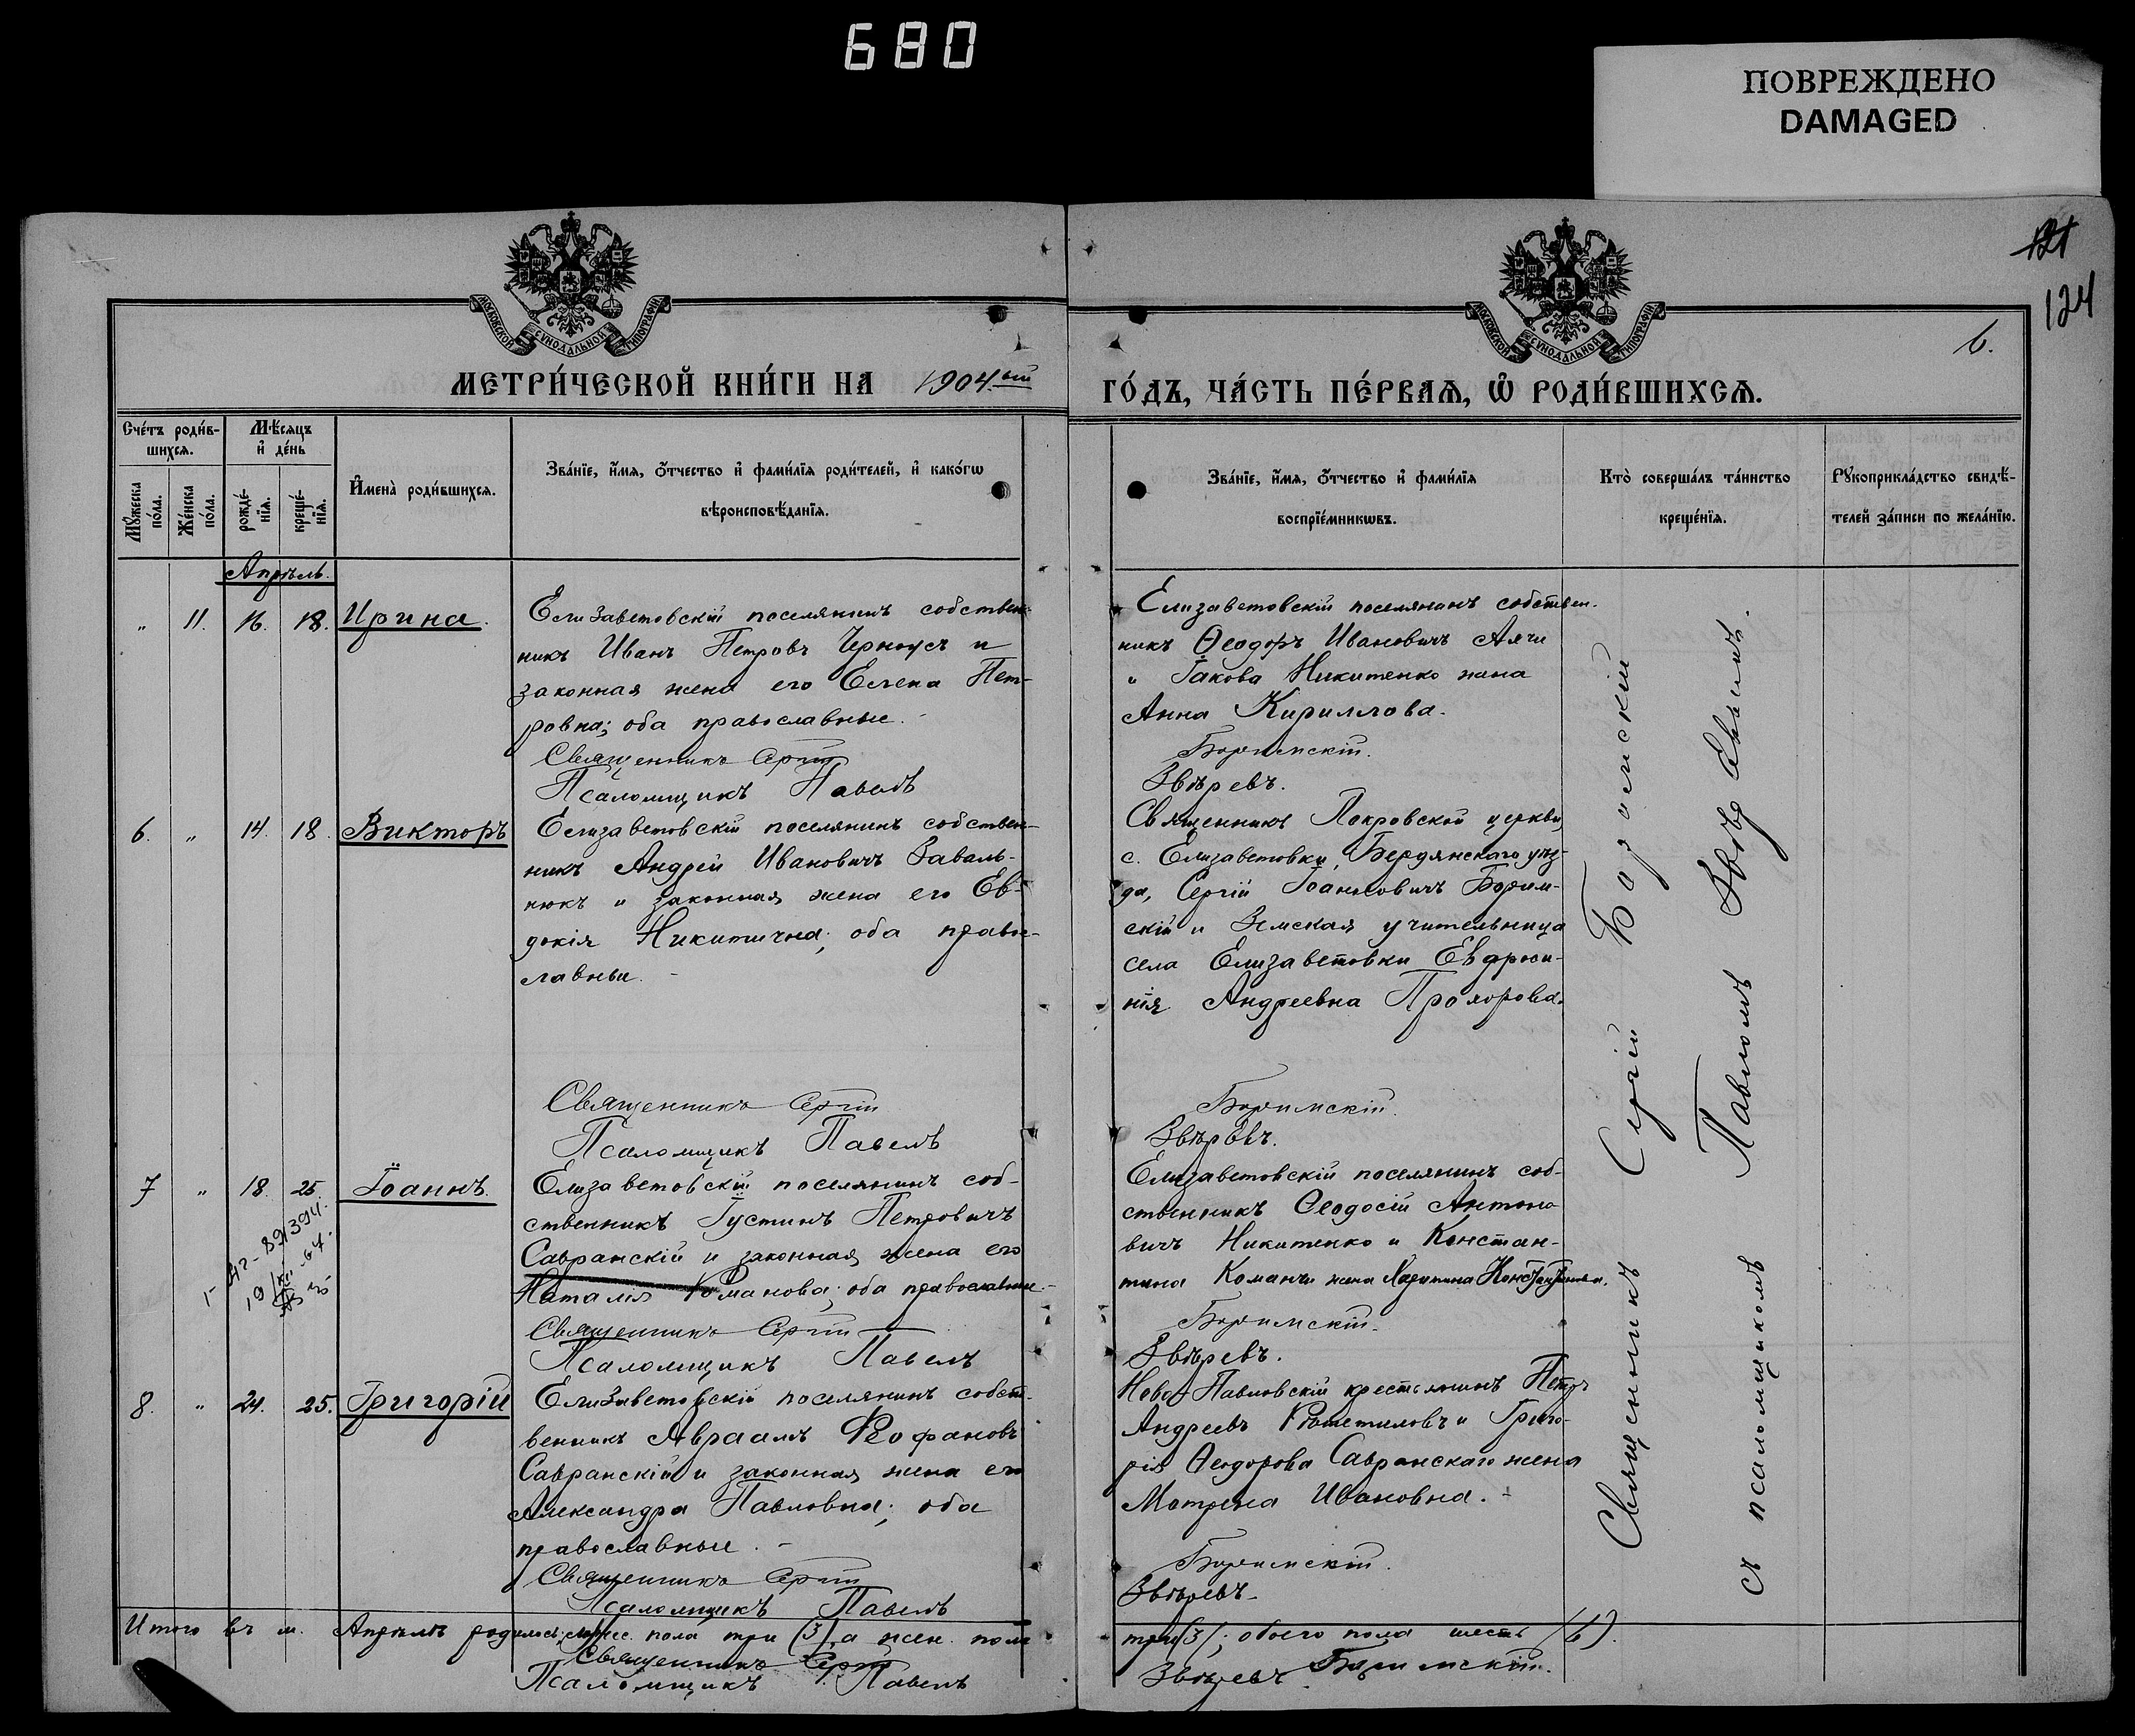 680
ПОВРЕЖДЕНО
DAMAGED
124
6.
МОСКОВСКОЙ СѴНОДАЛЬНОЙ ТИПОГРАФІИ
МОСКОВСКОЙ СѴНОДАЛЬНОЙ ТИПОГРАФІИ
МЕТРИ́ЧЕСКОЙ КНИ́ГИ НА 1904.ый
ГО́ДЪ, ЧА́СТЬ ПЕ́РВАѦ, Ѡ҆ РОДИ́ВШИХСѦ.
Сче́тъ роди́в-
шихсѧ.
Мꙋ́жеска по́ла.
Же́нска по́ла.
Мѣ́сѧцъ
и҆ де́нь
рожде́-
нїѧ.
креще́-
нїѧ.
И҆мена̀ роди́вшихсѧ.
Зва́нїе, и҆́мѧ, ѻ҆́тчество и҆ фами́лїѧ роди́телей, и҆ како́гѡ
вѣроисповѣ́данїѧ.
Зва́нїе, и҆́мѧ, ѻ҆́тчество и҆ фами́лїѧ
воспрїе́мникѡвъ.
Кто̀ соверша́лъ та́инство
креще́нїѧ.
Рꙋкоприкла́дство свидѣ́-
телей за́писи по жела́нїю.
Апрѣль.
„ 11. 16. 18. Ирина.
Елизаветовскій поселянинъ собствен-
никъ Иванъ Петровъ Черноусъ и
законная жена его Елена Пет-
ровна; оба православные.
Священникъ Сергій
Псаломщикъ Павелъ
Елизаветовскій поселянинъ собствен-
никъ Ѳеодоръ Ивановичъ Алчи
и Іакова Никитенко жена
Анна Кириллова.
Боримскій.
Звѣревъ.
6. „ 14. 18. Викторъ
Елизаветовскій поселянинъ собствен-
никъ Андрей Ивановичъ Заваль-
нюкъ и законная жена его Ев-
докія Никитична; оба право-
славные.
Священникъ Сергій
Псаломщикъ Павелъ
Священникъ Покровской церкви,
с. Елизаветовки, Бердянскаго уѣз-
да, Сергій Іоанновичъ Борим-
скій и Земская учительница
села Елизаветовки Евфроси-
нія Андреевна Прохорова.
Боримскій.
Звѣревъ.
7 „ 18. 25. Іоаннъ.
Елизаветовскій поселянинъ соб-
ственникъ Іустинъ Петровичъ
Савранскій и законная жена его
Наталія Романова; оба православные.
Священникъ Сергій
Псаломщикъ Павелъ
Елизаветовскій поселянинъ соб-
ственникъ Ѳеодосій Антоно-
вичъ Никитенко и Констан-
тина Команчи жена Харитина Константинова.
Боримскій.
Звѣревъ.
8. „ 24. 25. Григорій
Елизаветовскій поселянинъ собст-
венникъ Авраамъ Ѳеофановъ
Савранскій и законная жена его
Александра Павловна; оба
православные.
Священникъ Сергій
Псаломщикъ Павелъ
Ново-Павловскій крестьянинъ Петръ
Андреевъ и Григо-
рія Ѳеодорова Савранскаго жена
Матрена Ивановна.
Боримскій.
Звѣревъ.
Священникъ Сергій Боримскій
съ псаломщикомъ Павломъ
Итого въ м. Апрѣлѣ родилось: мужес. пола три (3), а жен. пола
три (3); обоего пола шесть (6).
Священникъ Сергій Боримскій.
Псаломщикъ Павелъ Звѣревъ